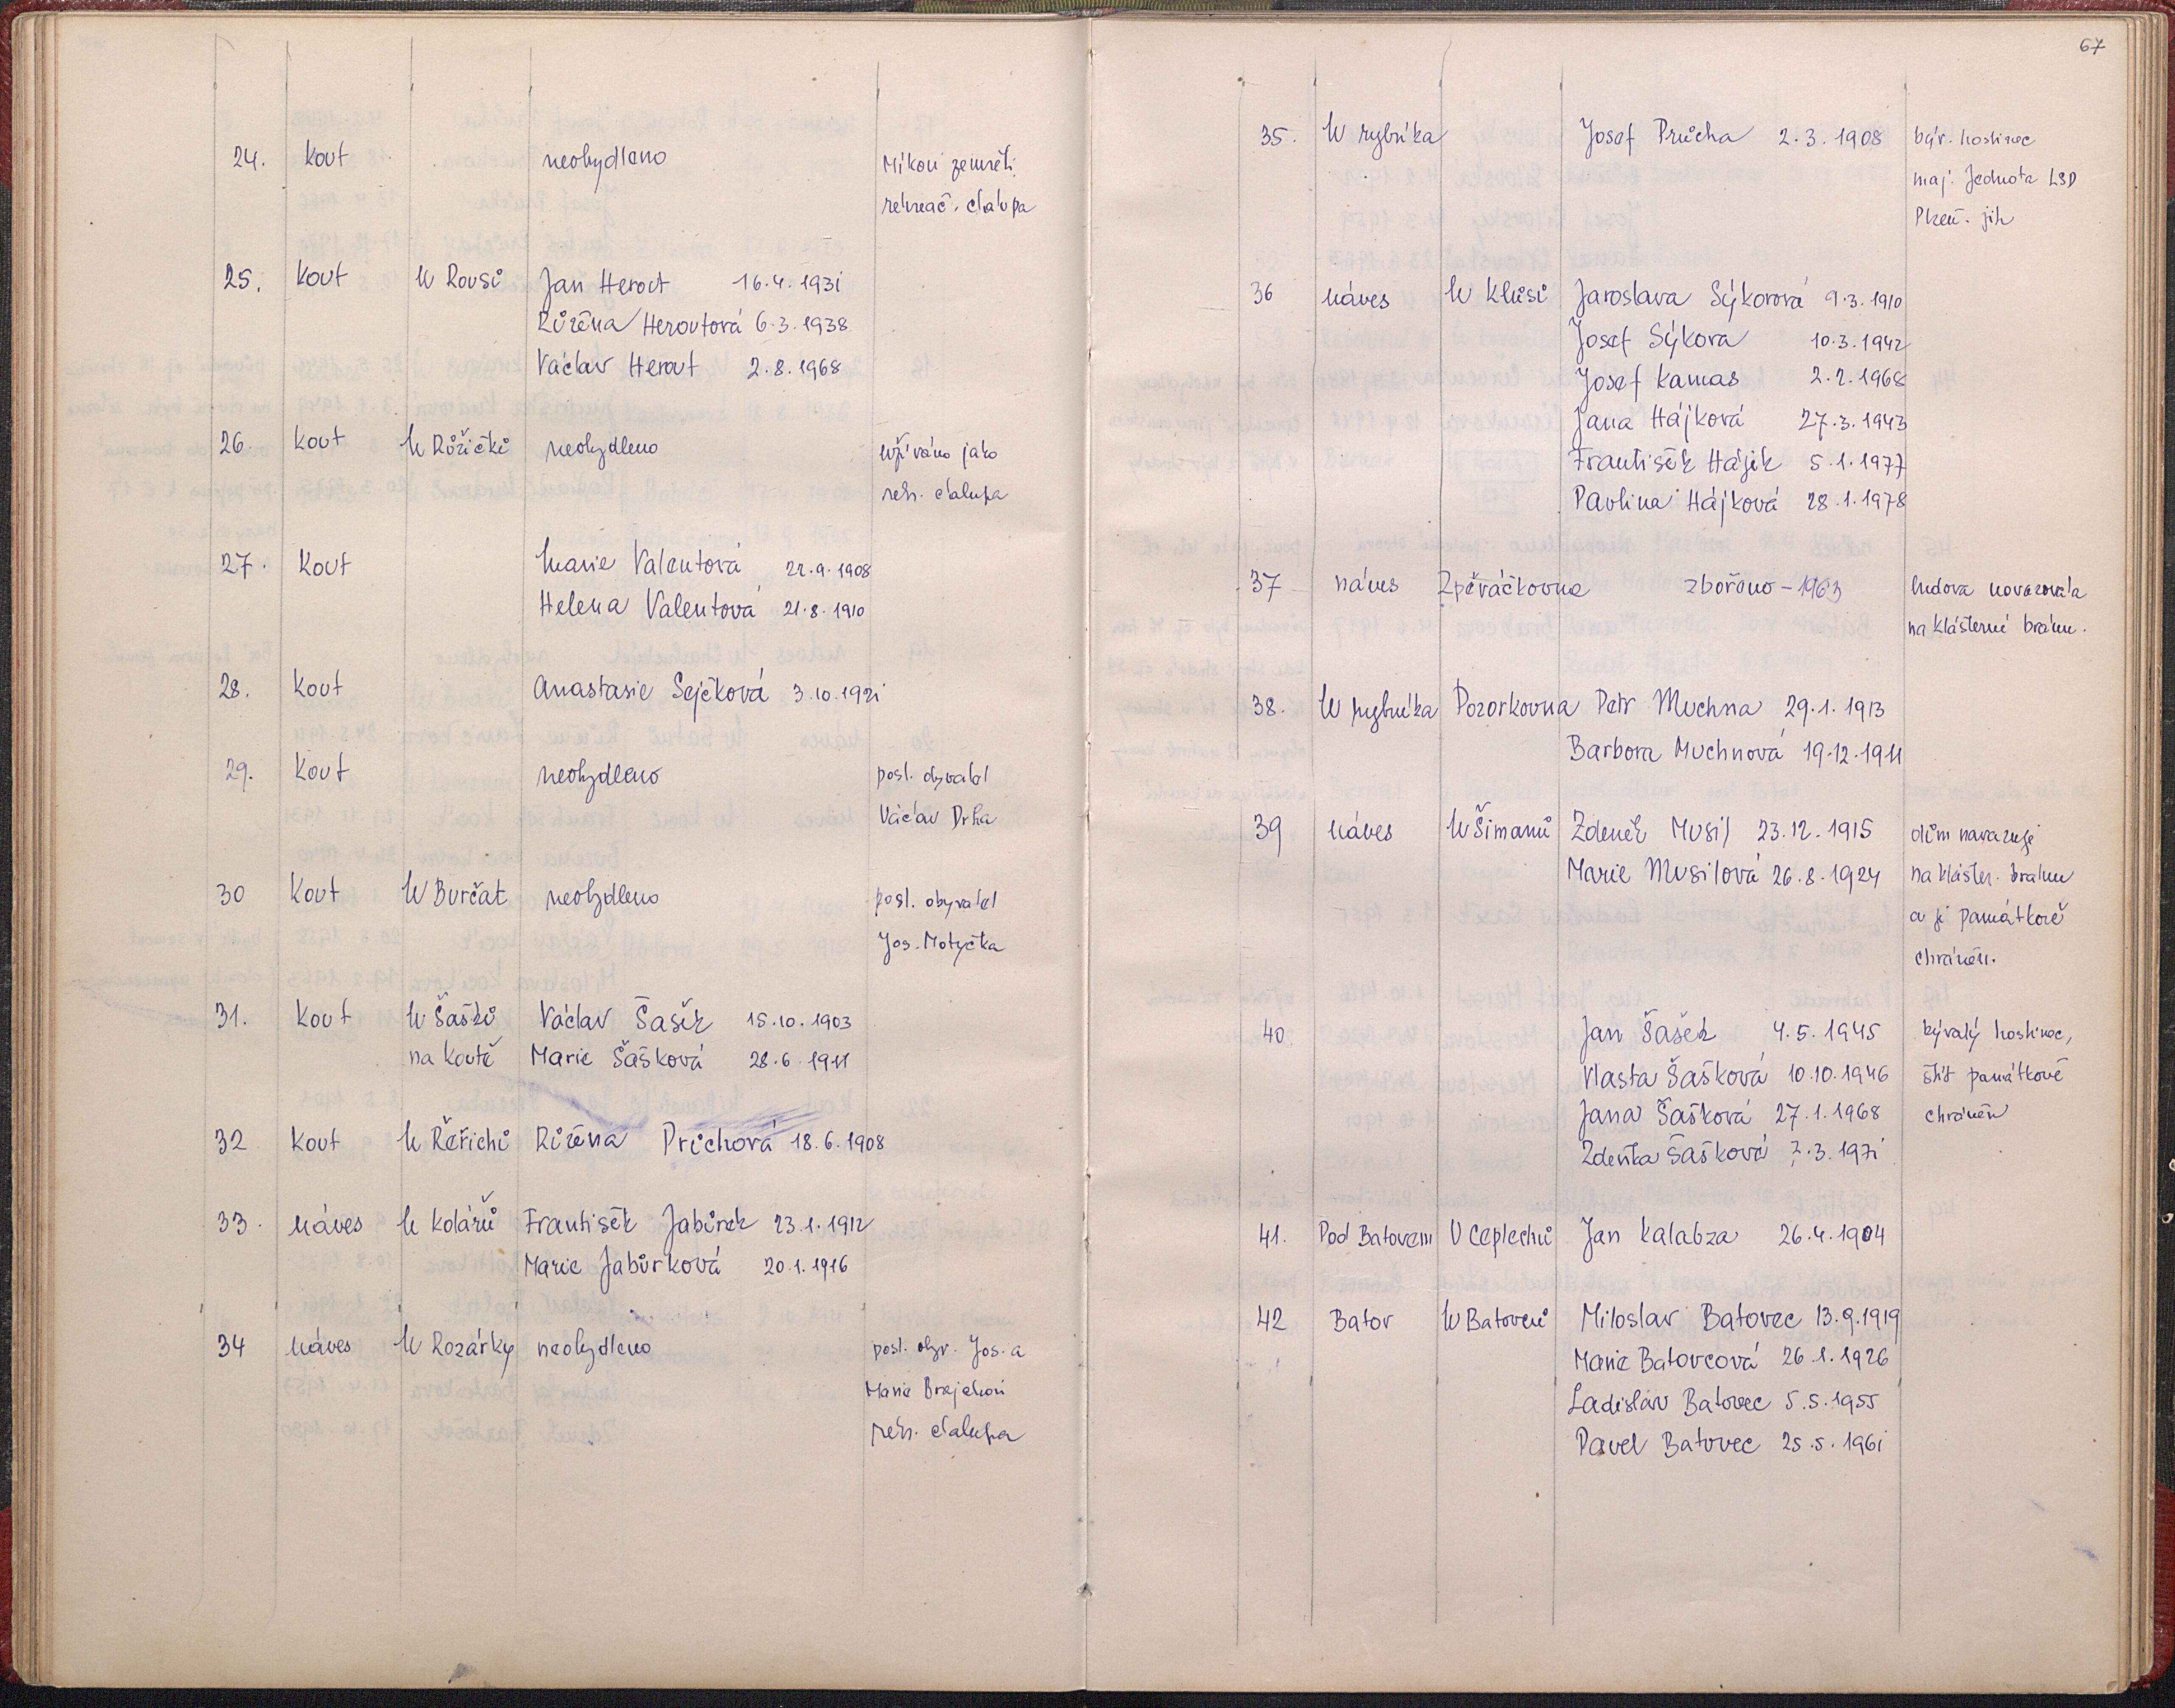 24. Kout neobydleno Mikovi zemřeli
rekreač. chalupa
25. Kout U Rousů Jan Herout 16.4.1931
Růžena Heroutová 6.3.1938
Václav Herout 2.8.1968
26. Kout U Růžičků neobydleno užíváno jako
rekr. chalupa
27. Kout Marie Valentová 22.9.1908
Helena Valentová 21.8.1910
28. Kout Anastasie Sejčková 3.10.1921
29. Kout neobydleno posl. obyvatel
Václav Drha
30 Kout U Burčat neobydleno posl. obyvatel
Jos. Motyčka
31. Kout U Šašků Václav Šašek 15.10.1903
na koutě Marie Šašková 28.6.1911
32 Kout U Řeřichů Růžena Průchová 18.6.1908
33. náves U Kolářů František Jabůrek 23.1.1912
Marie Jabůrková 20.1.1916
34 náves U Rozárky neobydleno posl. obyv. Jos. a
Marie
rekr. chalupa
67
35. U rybníka Josef Průcha 2.3.1908 býv. hostinec
maj. Jednota LSD
Plzeň - jih
36 náves U Klusů Jaroslava Sýkorová 9.3.1910
Josef Sýkora 10.3.1942
Josef Kamas 2.2.1968
Jana Hájková 27.3.1943
František Hájek 5.1.1977
Pavlína Hájková 28.1.1978
37 náves Zpěváčkovna zbořeno - 1963 budova navazovala
na klášterní bránu.
38. U rybníka Pozorkovna Petr Muchna 29.1.1913
Barbora Muchnová 19.12.1911
39 náves U Šimanů Zdeněk Musil 23.12.1915 dům navazuje
Marie Musilová 26.8.1924 na klášter. bránu
a je památkově
chráněn.
40 Jan Šašek 4.5.1945 bývalý hostinec,
Vlasta Šašková 10.10.1946 štít památkově
Jana Šašková 27.1.1968 chráněn
Zdeňka Šašková 7.3.1971
41. Pod Batovem U Ceplechů Jan Kalabza 26.4.1904
42 Batov U Batovců Miloslav Batovec 13.9.1919
Marie Batovcová 26.1.1926
Ladislav Batovec 5.5.1955
Pavel Batovec 25.5.1961